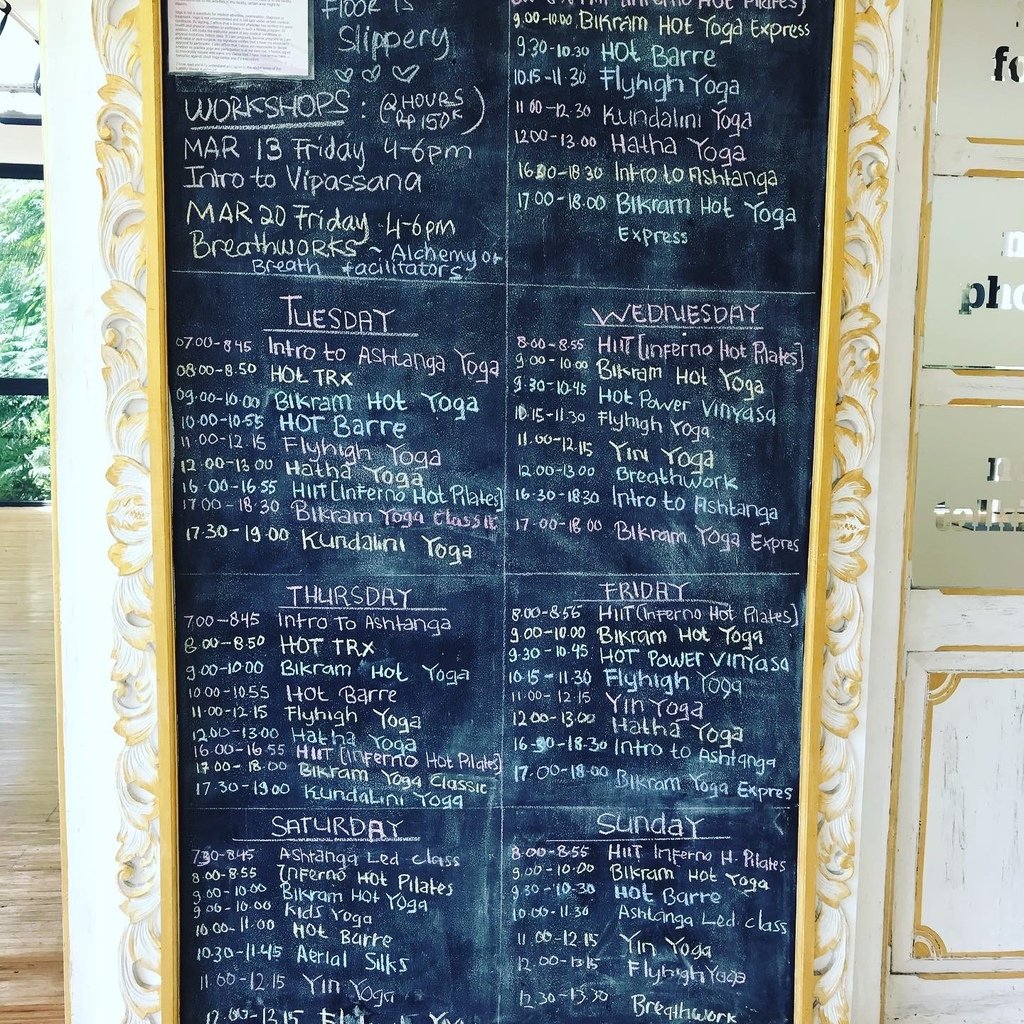 FLOOR IS
Slippery
WORKSHOPS : (2 HOURS
Rp 150K)
MAR 13 Friday 4-6pm
Intro to Vipassana
MAR 20 Friday 4-6pm
Breathworks ~ Alchemy of
Breath facilitators
9.00-10.00 Bikram Hot Yoga Express
9.30-10.30 HOT Barre
10.15-11.30 Flyhigh Yoga
11.00-12.30 Kundalini Yoga
12.00-13.00 Hatha Yoga
16.30-18.30 Intro to Ashtanga
17.00-18.00 Bikram Hot Yoga
Express
TUESDAY
07.00-8.45 Intro to Ashtanga Yoga
08.00-8.50 HOT TRX
09.00-10.00 Bikram Hot Yoga
10.00-10.55 HOT Barre
11.00-12.15 Flyhigh Yoga
12.00-13.00 Hatha Yoga
16.00-16.55 HIIT [Inferno Hot Pilates]
17.00-18.30 Bikram Yoga Classic
17.30-19.00 Kundalini Yoga
WEDNESDAY
8.00-8.55 HIIT [Inferno Hot Pilates]
9.00-10.00 Bikram Hot Yoga
9.30-10.45 Hot Power Vinyasa
10.15-11.30 Flyhigh Yoga
11.00-12.15 Yin Yoga
12.00-13.00 Breathwork
16.30-18.30 Intro to Ashtanga
17.00-18.00 Bikram Yoga Expres
THURSDAY
7.00-8.45 Intro To Ashtanga
8.00-8.50 HOT TRX
9.00-10.00 Bikram Hot Yoga
10.00-10.55 Hot Barre
11.00-12.15 Flyhigh Yoga
12.00-13.00 Hatha Yoga
16.00-16.55 HIIT [Inferno Hot Pilates]
17.00-18.00 Bikram Yoga Classic
17.30-19.00 Kundalini Yoga
FRIDAY
8.00-8.55 HIIT [Inferno Hot Pilates]
9.00-10.00 Bikram Hot Yoga
9.30-10.45 HOT POWER Vinyasa
10.15-11.30 Flyhigh Yoga
11.00-12.15 Yin Yoga
12.00-13.00 Hatha Yoga
16.30-18.30 Intro to Ashtanga
17.00-18.00 Bikram Yoga Expres
SATURDAY
7.30-8.45 Ashtanga Led class
8.00-8.55 Inferno Hot Pilates
9.00-10.00 Bikram Hot Yoga
9.00-10.00 Kids Yoga
10.00-11.00 Hot Barre
10.30-11.45 Aerial Silks
11.00-12.15 Yin Yoga
12.00-13.15
Sunday
8.00-8.55 HIIT Inferno H. Pilates
9.00-10.00 Bikram Hot Yoga
9.30-10.30 Hot Barre
10.00-11.30 Ashtanga Led class
11.00-12.15 Yin Yoga
12.00-13.15 Flyhigh Yoga
12.30-13.30 Breathwork